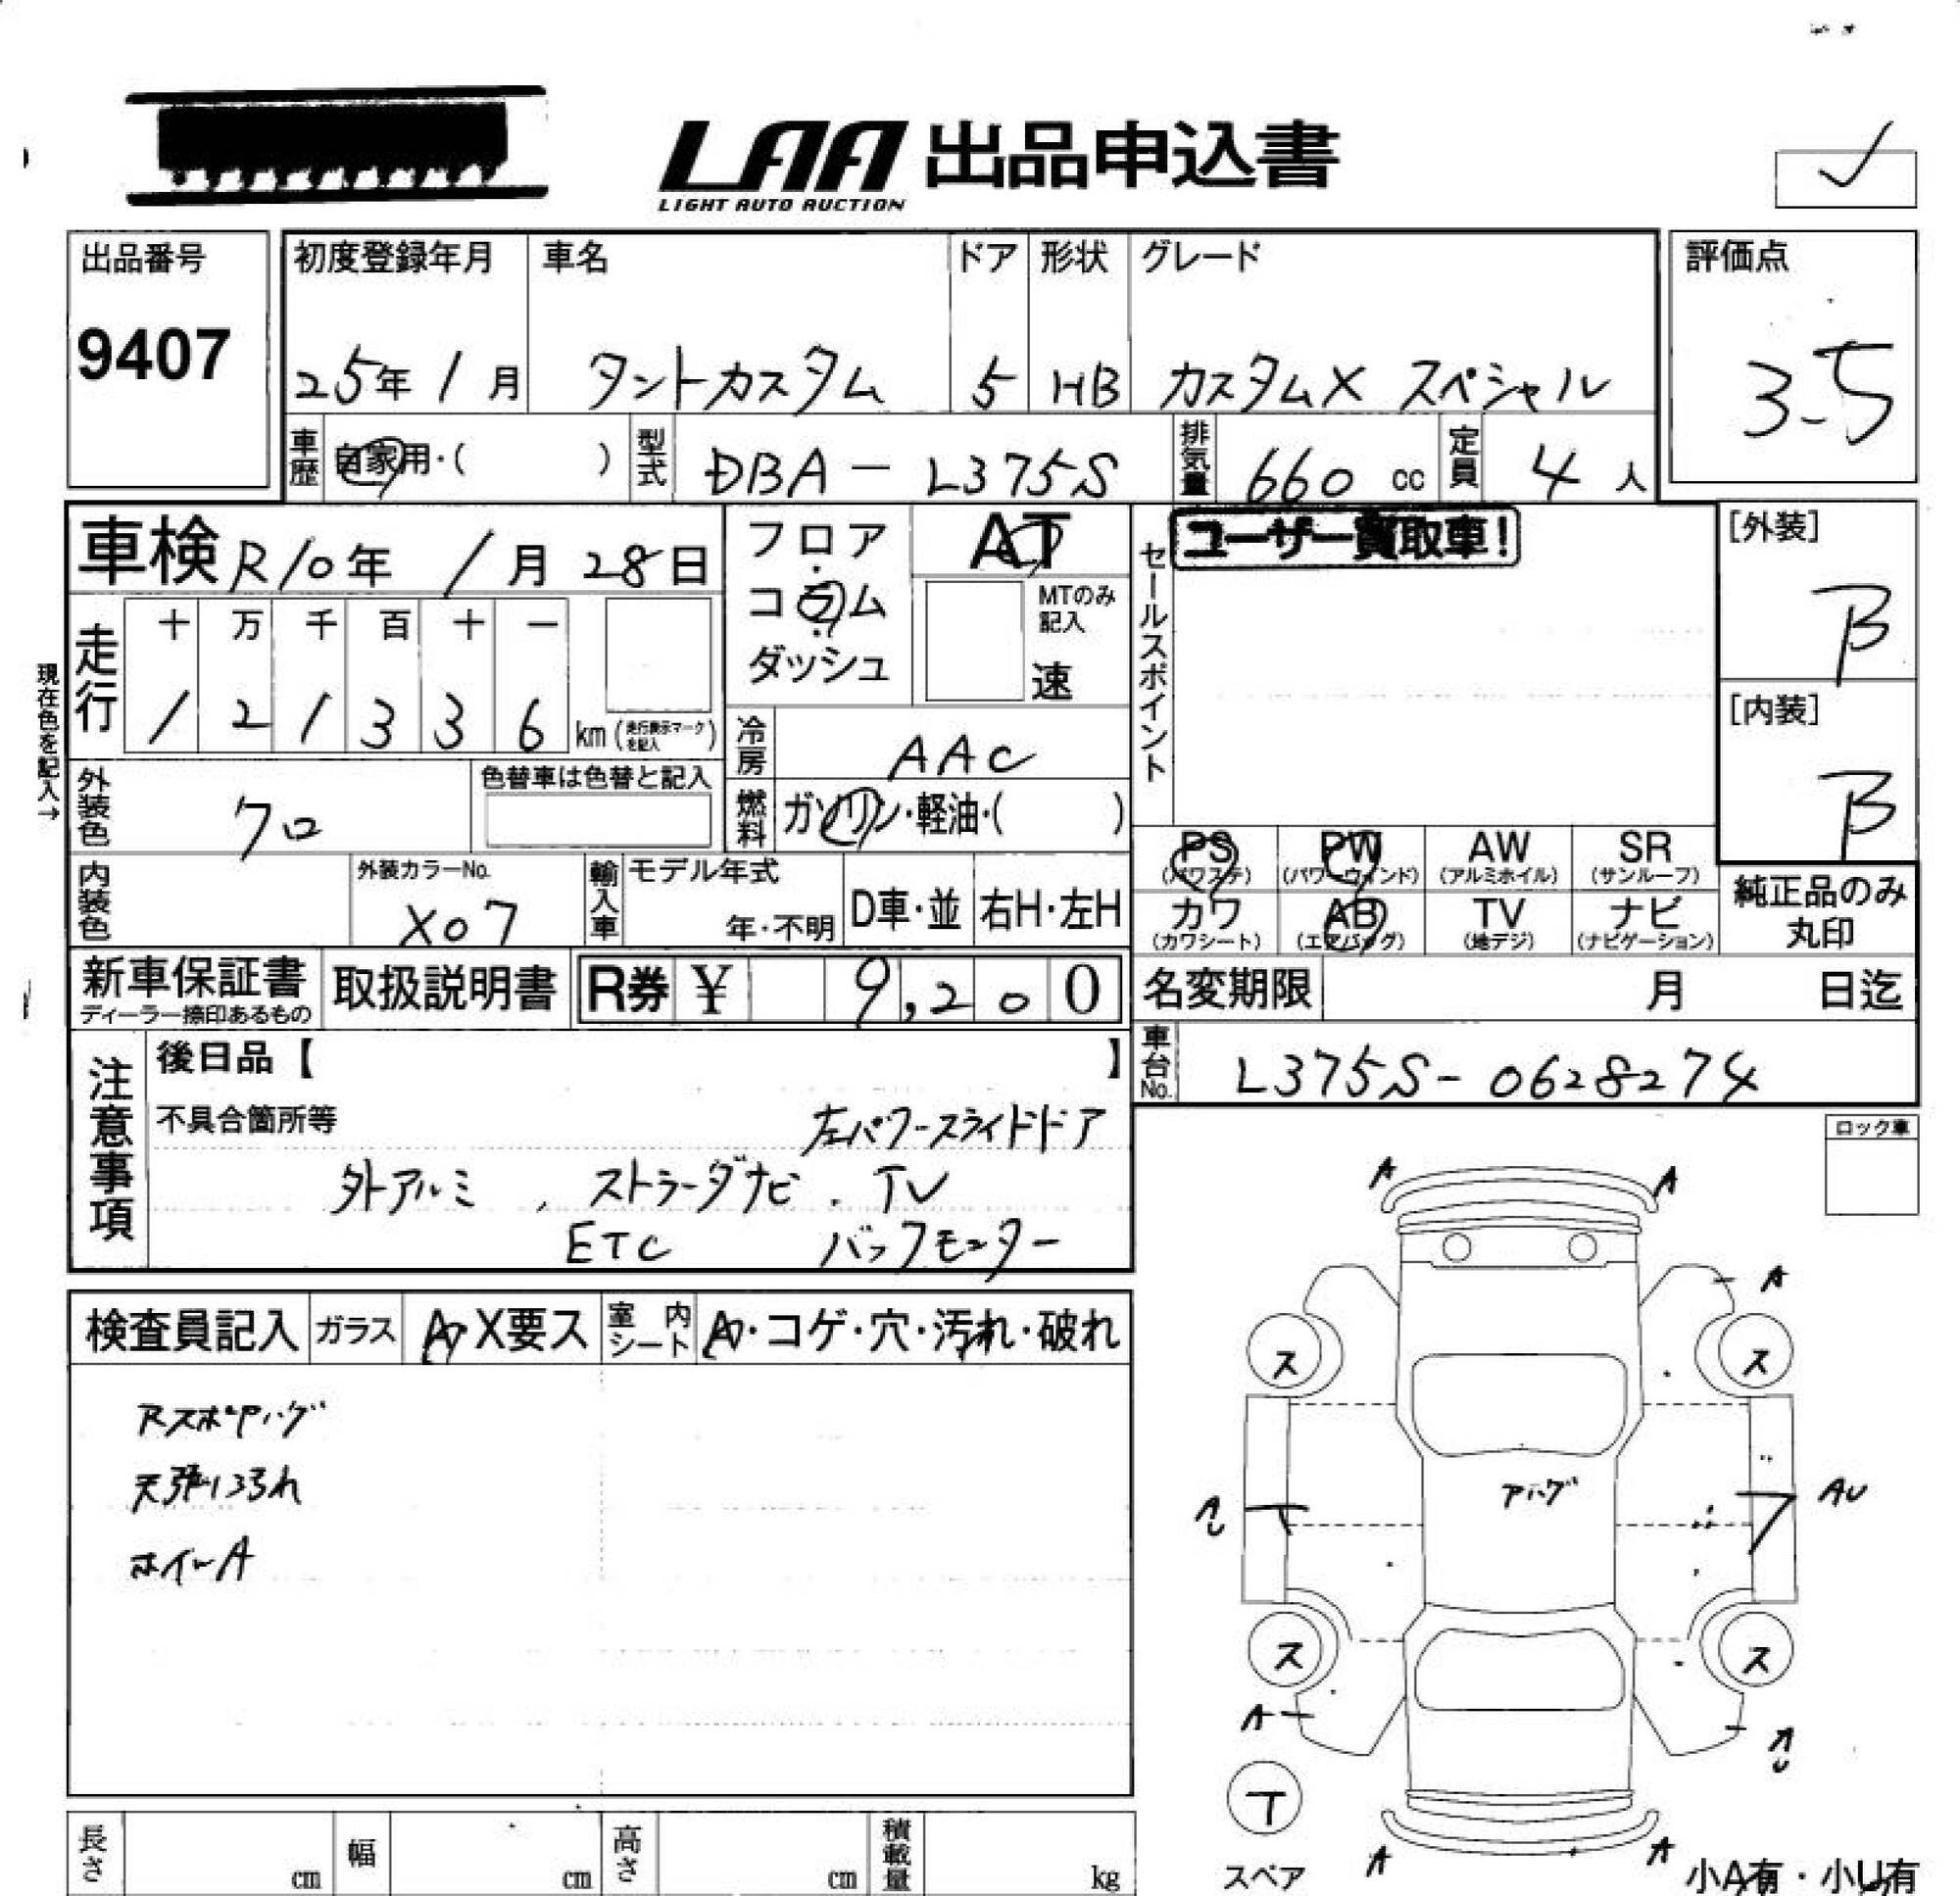 LAA 出品申込書
LIGHT AUTO AUCTION
出品番号
9407
初度登録年月
25年1月
車名
タントカスタム
ドア
5
形状
HB
グレード
カスタムX スペシャル
評価点
3.5
車歴
自家用・( )
型式
DBA-L375S
排気量
660 cc
定員
4 人
車検 R10年 1月 28日
現在色を記入→
走行
十 万 千 百 十 一
1 2 1 3 3 6 km (走行表示マークを記入)
フロア
・
コラム
・
ダッシュ
AT
MTのみ
記入
速
冷房
AAC
燃料
ガソリン・軽油・( )
セールスポイント
ユーザー買取車!
[外装]
B
[内装]
B
外装色
クロ
色替車は色替と記入
内装色
外装カラーNo.
X07
輸入車
モデル年式
年・不明
D車・並
右H・左H
PS
(パワステ)
PW
(パワーウィンド)
AW
(アルミホイル)
SR
(サンルーフ)
カワ
(カワシート)
AB
(エアバッグ)
TV
(地デジ)
ナビ
(ナビゲーション)
純正品のみ
丸印
新車保証書
ディーラー捺印あるもの
取扱説明書
R券 ¥ 9,200
名変期限 月 日迄
車台No.
L375S-0628274
注意事項
後日品【 】
不具合箇所等
左パワースライドドア
外アルミ、ストラーダナビ.TV
ETC バックモニター
ロック車
検査員記入
ガラス
A・X要ス
室内シート
A・コゲ・穴・汚れ・破れ
天張り汚れ
ホイールA
A A
A
ス ス
アハグ
AU AU
ス ス
A AU
T
スペア
A A
小A有・小U有
長さ cm
幅 cm
高さ cm
積載量 kg